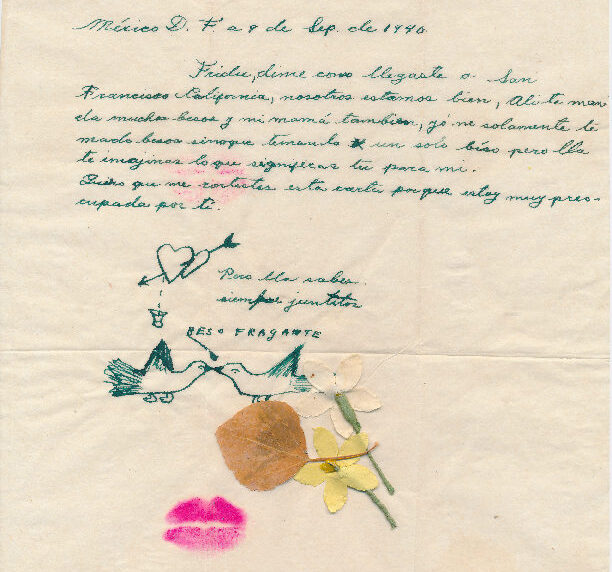 México D. F. a 9 de Sep. de 1940
Fridu, dime como llegaste a San
Francisco California, nosotros estamos bien, Ali te man
da muchos besos y mi mamá tambien, yó ne solamente te
mado besos sinoque temando un solo béso pero lla
te imajinas lo que significas tu para mi.
Quiero que me contestes esta carta porque estoy muy preo-
cupada por tí.
Pero lla sabes.
siempre juntitos
BESO FRAGANTE